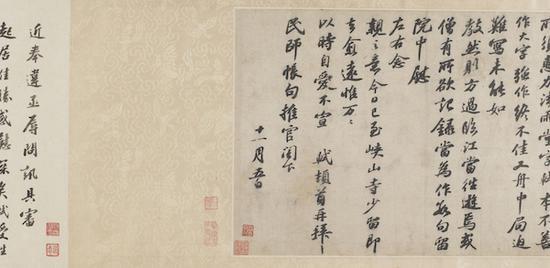 所須惠力法雨堂字軾本不善
作大字強作終不佳又舟中局迫
難寫未能如
教然軾方過臨江當往遊焉或
僧有所欲記錄當為作數句留
院中慰
左右念
親之意今日已至峽山寺少留即
去愈遠惟万万
以時自愛不宣 軾頓首再拜
民師帳句推官閣下
十一月五日
近奉違亟辱問訊具審
起居佳勝感慰深矣軾受性